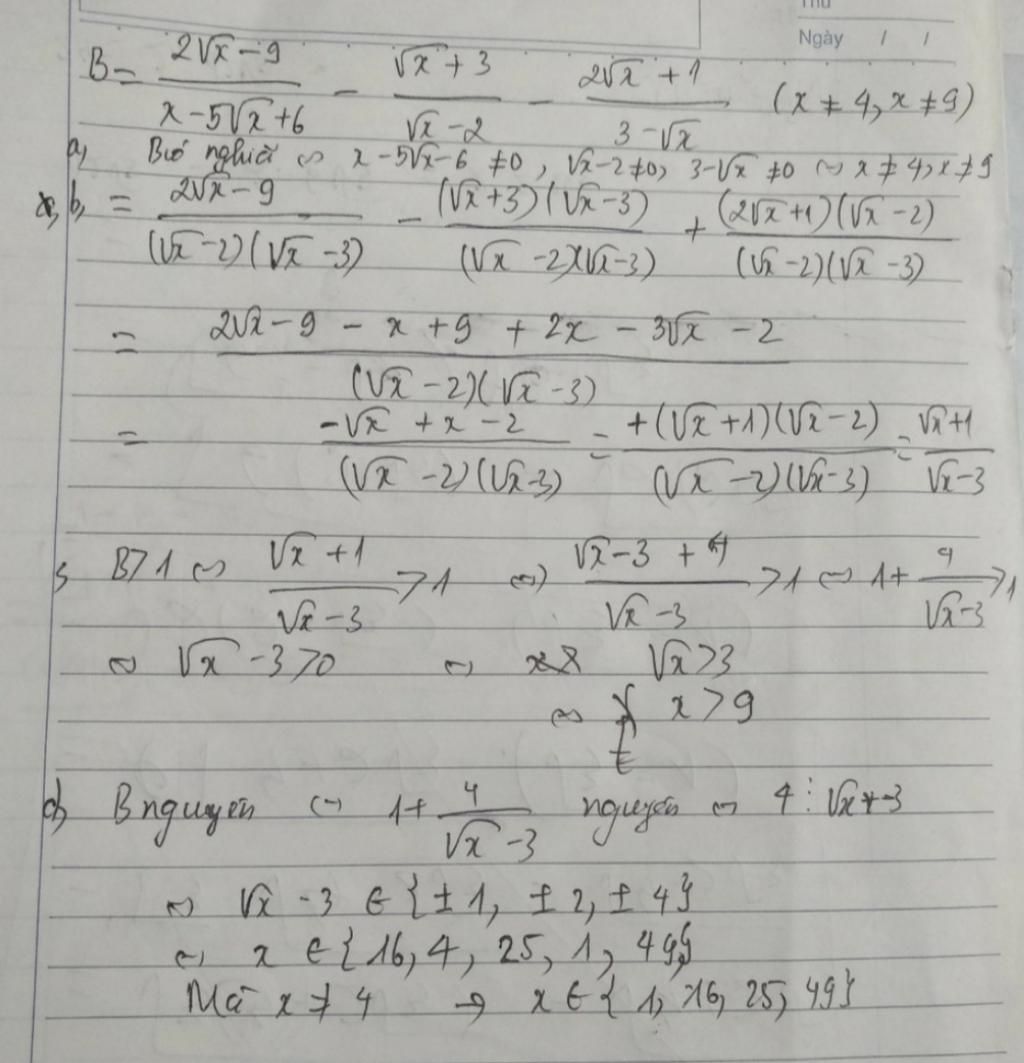 Thứ
Ngày / /
B = (2√x - 9)/(x - 5√x + 6) - (√x + 3)/(√x - 2) - (2√x + 1)/(3 - √x) (x ≠ 4, x ≠ 9)
a, B có nghĩa ⇔ x - 5√x - 6 ≠ 0, √x - 2 ≠ 0, 3 - √x ≠ 0 ⇔ x ≠ 4, x ≠ 9
b, = (2√x - 9)/((√x - 2)(√x - 3)) - ((√x + 3)(√x - 3))/((√x - 2)(√x - 3)) + ((2√x + 1)(√x - 2))/((√x - 2)(√x - 3))
= (2√x - 9 - x + 9 + 2x - 3√x - 2)/((√x - 2)(√x - 3))
= (-√x + x - 2)/((√x - 2)(√x - 3)) = (+(√x + 1)(√x - 2))/((√x - 2)(√x - 3)) = (√x + 1)/(√x - 3)
B > 1 ⇔ (√x + 1)/(√x - 3) > 1 ⇔ (√x - 3 + 4)/(√x - 3) > 1 ⇔ 1 + 4/(√x - 3) > 1
⇔ √x - 3 > 0 ⇔ √x > 3
⇔ x > 9
d, B nguyên ⇔ 1 + 4/(√x - 3) nguyên ⇔ 4 ⋮ √x - 3
⇔ √x - 3 ∈ {±1, ±2, ±4}
⇔ x ∈ {16, 4, 25, 1, 49}
Mà x ≠ 4 → x ∈ {1, 16, 25, 49}